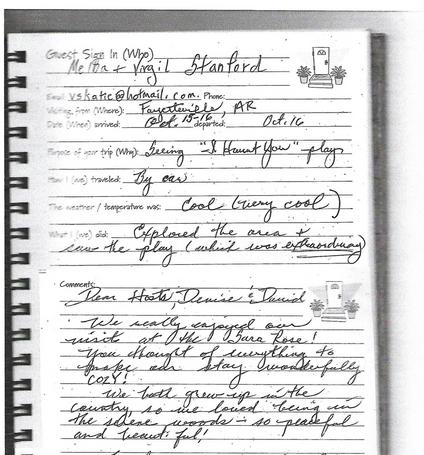 Guest Sign In (Who)
Melba + Virgil Stanford
Email vskatie@hotmail.com. Phone:
Visiting from (Where): Fayetteville, AR
Date (When) arrived: Oct. 15-16 departed: Oct. 16
Purpose of your trip (Why): Seeing "I Haunt You" play
How I (we) traveled: By car
The weather / temperature was: Cool (very cool)
What I (we) did: Explored the area +
saw the play (which was extraordinary)
Comments:
Dear Hosts, Denise & David
We really enjoyed our
visits at the Sara Rose!
You thought of everything to
make our stay wonderfully
COZY!
We both grew up in the
country, so we loved being in
the serene woods - so peaceful
and beautiful!